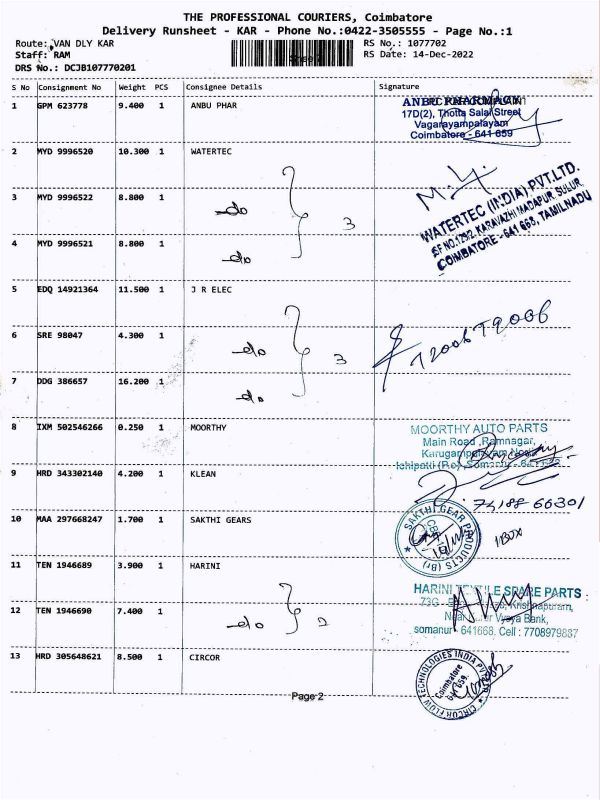 THE PROFESSIONAL COURIERS, Coimbatore
Delivery Runsheet - KAR - Phone No.:0422-3505555 - Page No.:1
Route: VAN DLY KAR
Staff: RAM
DRS No.: DCJB107770201
RS No.: 1077702
RS Date: 14-Dec-2022
S No Consignment No Weight PCS Consignee Details Signature
1 GPM 623778 9.400 1 ANBU PHAR
ANBU PHARMACY
17D(2), Thotta Salai Street
Vagarayampalayam
Coimbatore - 641 659
2 MYD 9996520 10.300 1 WATERTEC
3 MYD 9996522 8.800 1 do
3
4 MYD 9996521 8.800 1 do
WATERTEC (INDIA) PVT.LTD.
SF NO.129/2, KARAVAZHI MADAPUR, SULUR,
COIMBATORE - 641 668, TAMILNADU
5 EDQ 14921364 11.500 1 J R ELEC
6 SRE 98047 4.300 1 do
3
7 DDG 386657 16.200 1 do
8 IXM 502546266 0.250 1 MOORTHY
MOORTHY AUTO PARTS
Main Road, Ramnagar,
Karugampalayam
9 HRD 343302140 4.200 1 KLEAN
74188 66301
10 MAA 297668247 1.700 1 SAKTHI GEARS
SAKTHI GEAR PRODUCTS (Br)
1 BOX
11 TEN 1946689 3.900 1 HARINI
HARINI TEXTILE SPARE PARTS
Krishnapuram,
Vysya Bank,
somanur - 641668. Cell : 7708979837
12 TEN 1946690 7.400 1 do
2
13 HRD 305648621 8.500 1 CIRCOR
CIRCOR FLOW TECHNOLOGIES INDIA PVT
Coimbatore
641 659.
Page 2